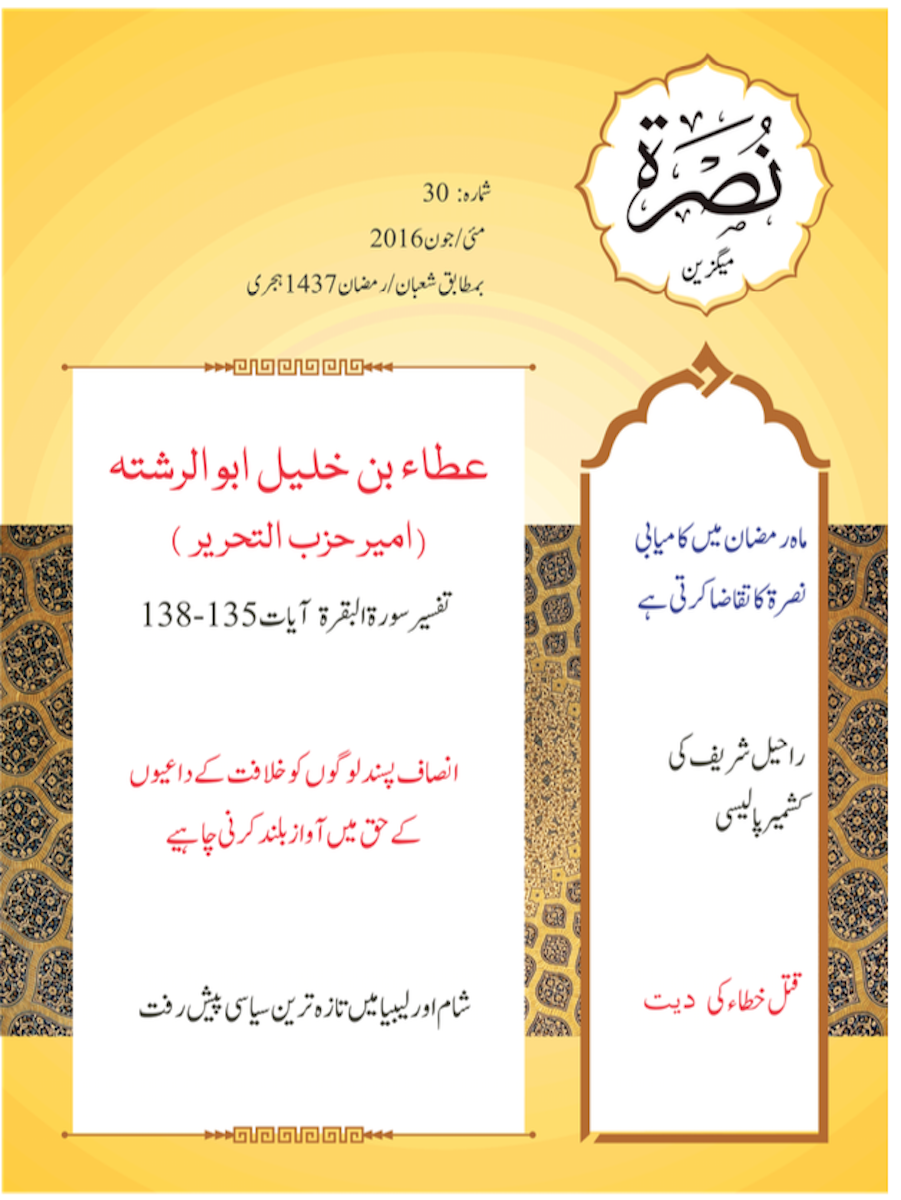 نُصْرَة
میگزین
شمارہ: 30
مئی/جون 2016
بمطابق شعبان/رمضان 1437 ہجری
ماہ رمضان میں کامیابی
نصرۃ کا تقاضا کرتی ہے
راحیل شریف کی
کشمیر پالیسی
قتل خطاء کی دیت
عطاء بن خلیل ابو الرشتہ
(امیر حزب التحریر )
تفسیر سورۃ البقرۃ آیات 135-138
انصاف پسند لوگوں کو خلافت کے داعیوں
کے حق میں آواز بلند کرنی چاہیے
شام اور لیبیا میں تازہ ترین سیاسی پیش رفت